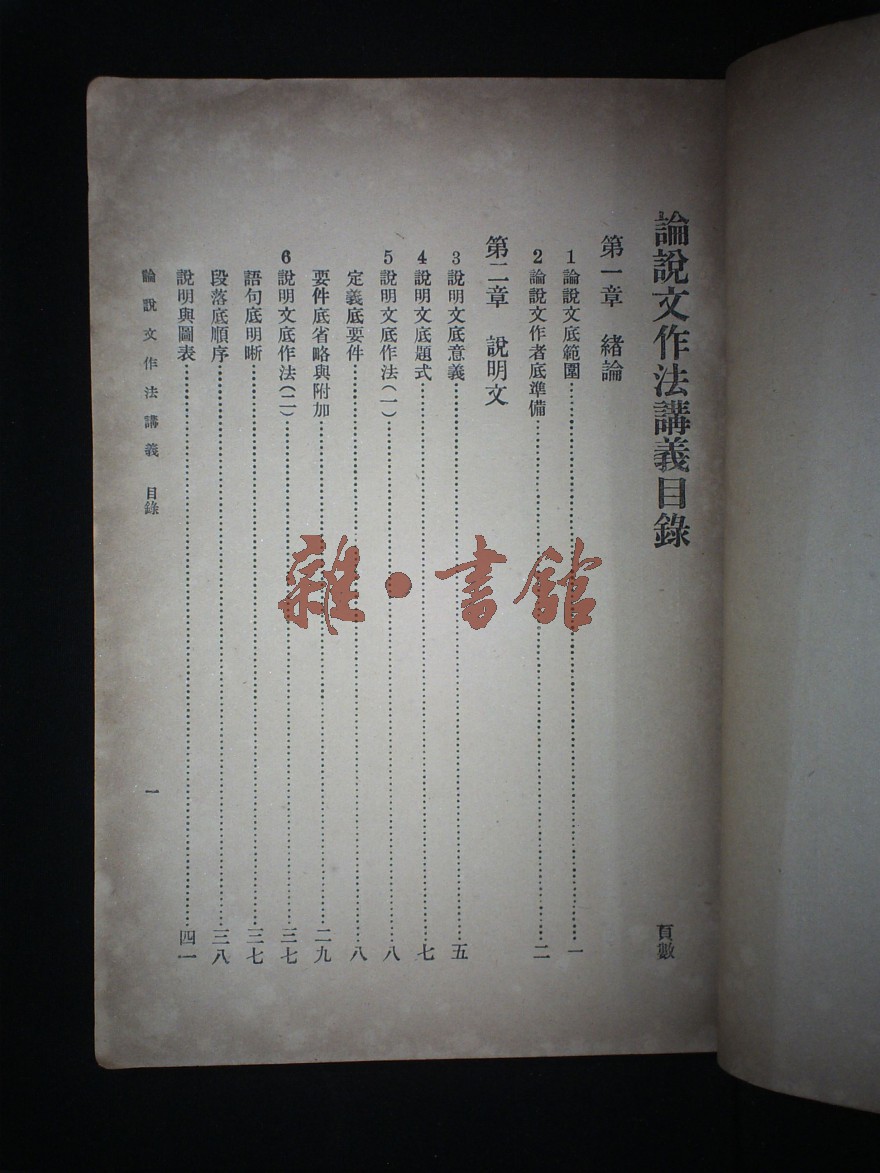 論說文作法講義目錄 頁數
第一章 緒論
1 論說文底範圍……一
2 論說文作者底準備……二
第二章 說明文
3 說明文底意義……五
4 說明文底題式……七
5 說明文底作法(一)……八
定義底要件……八
要件底省略與附加……二九
6 說明文底作法(二)……三七
語句底明晰……三七
段落底順序……三八
說明與圖表……四一
論說文作法講義 目錄 一
雜·書館